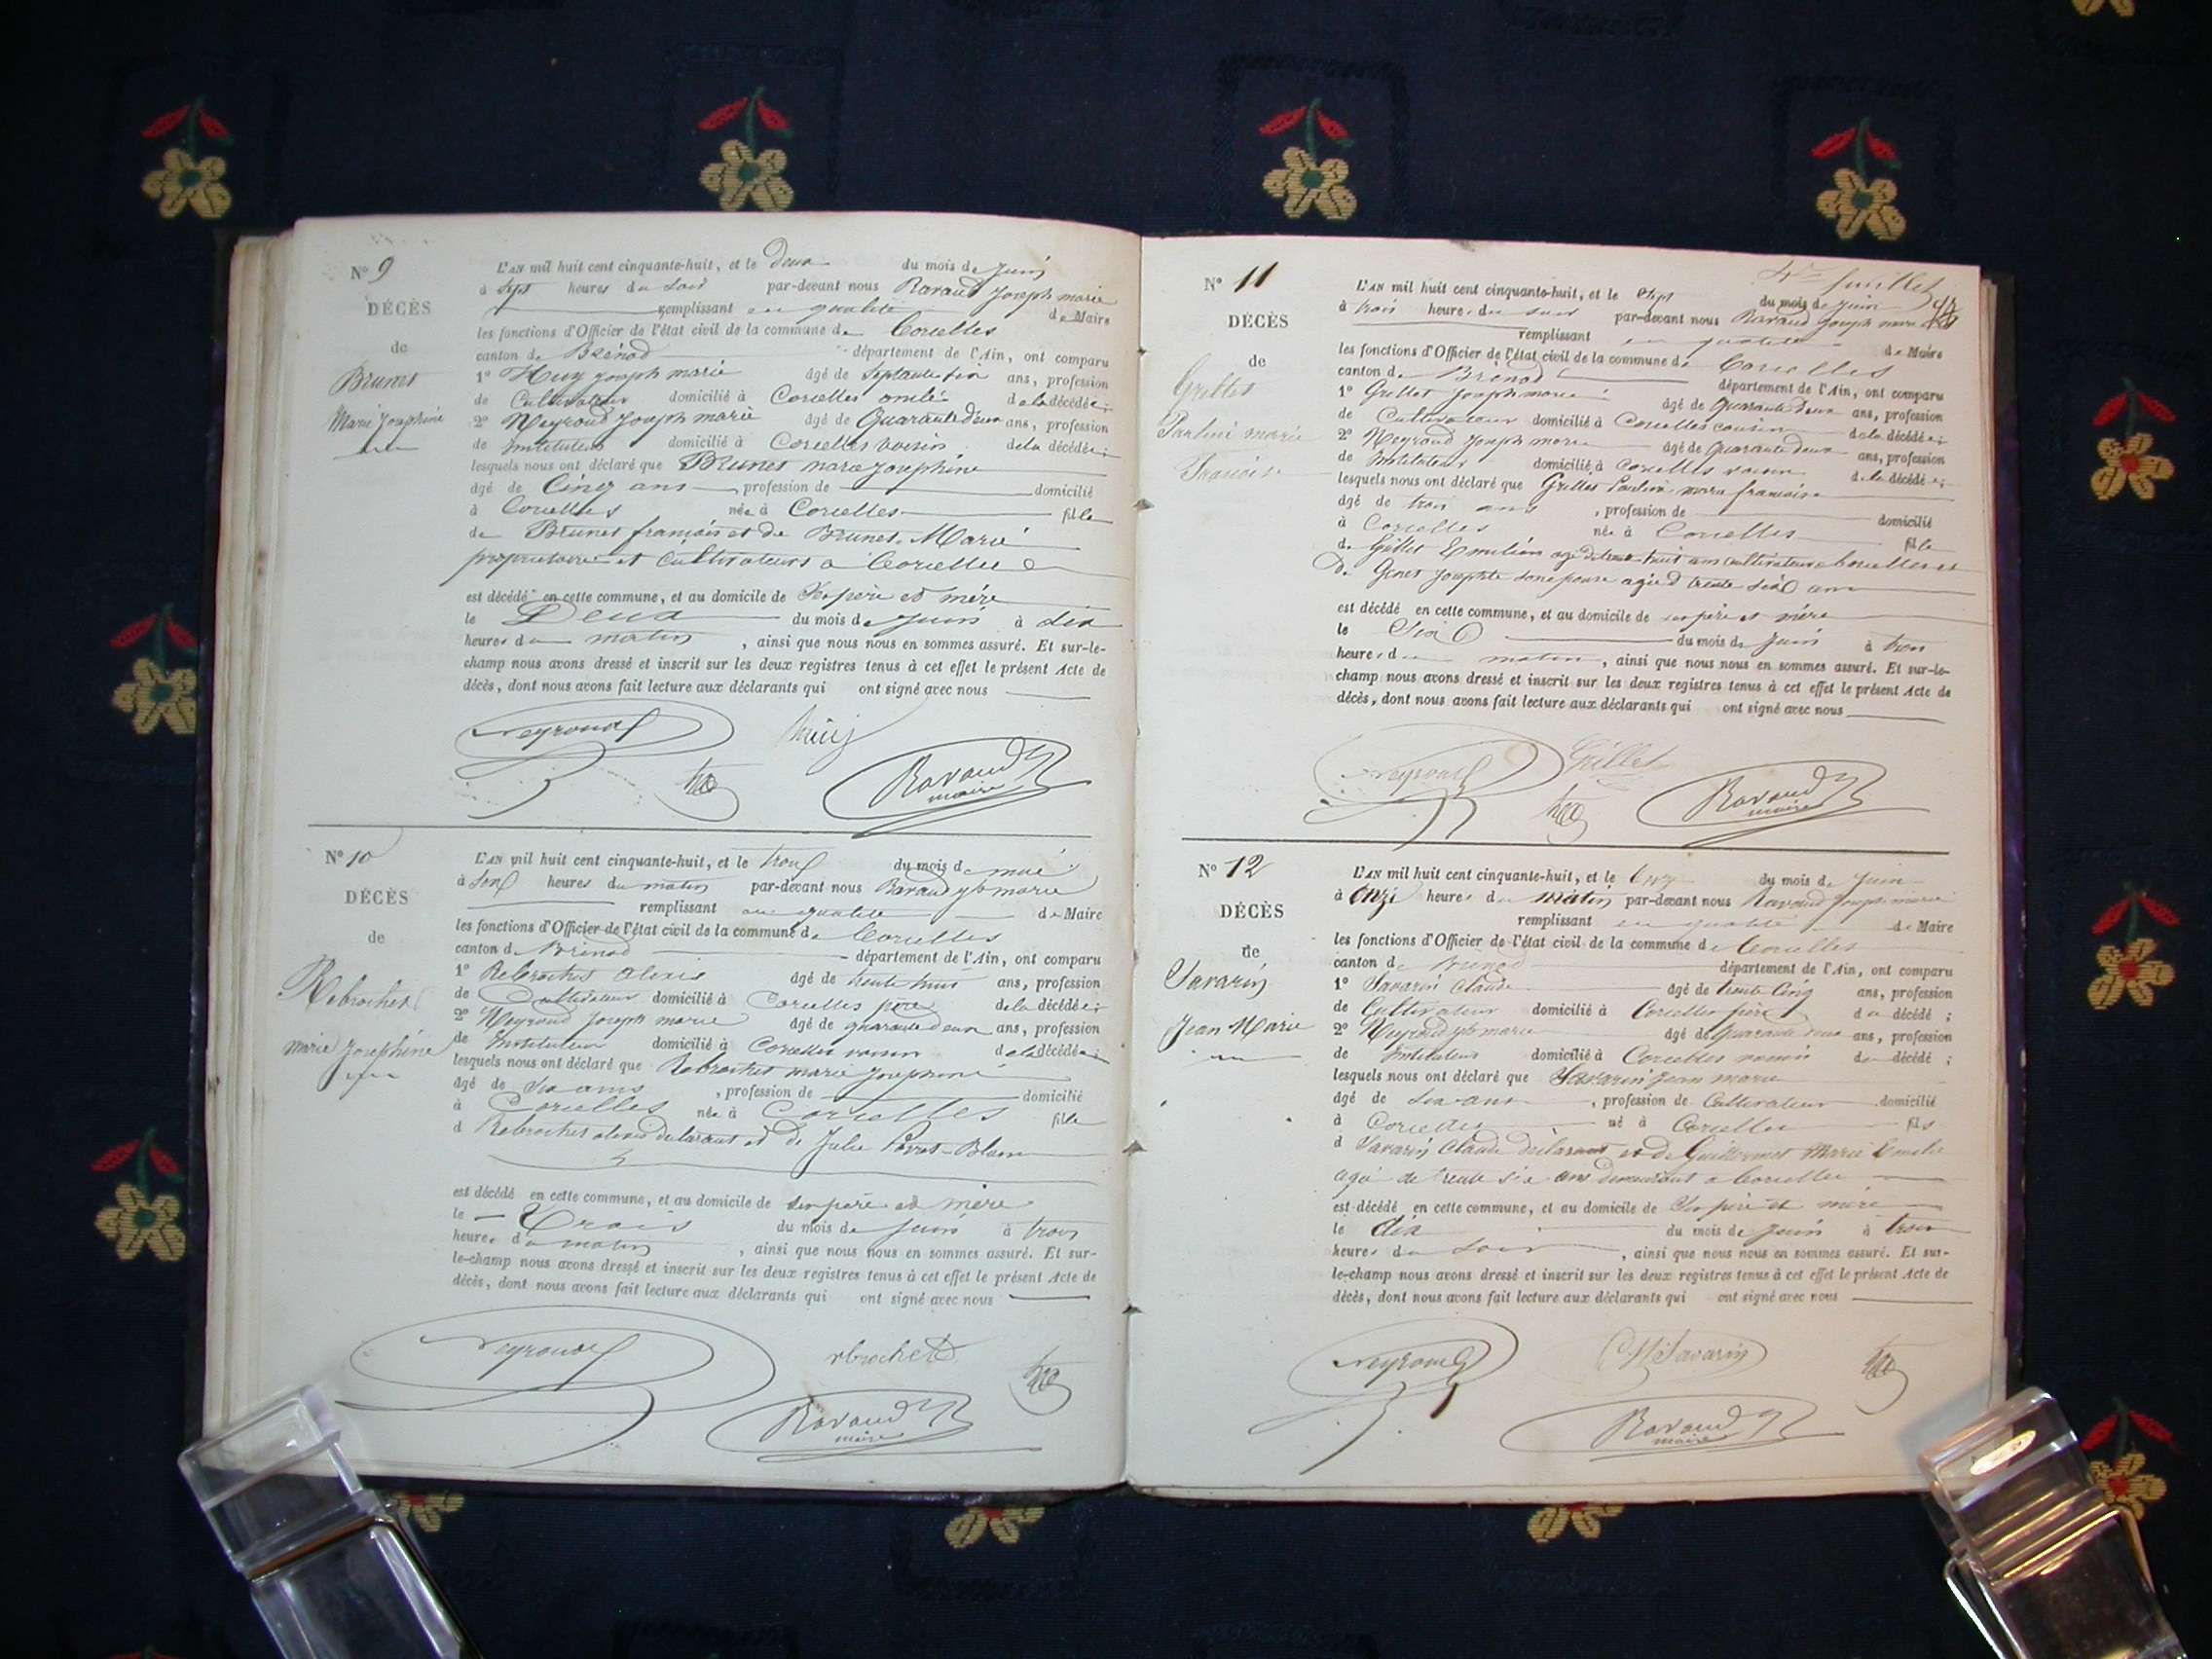 N° 9
DÉCÈS
de
Brunet
Marie Josephine
L'AN mil huit cent cinquante-huit, et le Deux du mois de Juin
à sept heures du soir par-devant nous Ravaud Joseph marie
remplissant en qualité de Maire
les fonctions d'Officier de l'état civil de la commune de Corcelles
canton de Brénod département de l'Ain, ont comparu
1° Huy joseph marie âgé de Septante six ans, profession
de Cultivateur domicilié à Corcelles de la décédée;
2° Neyroud Joseph marie âgé de Quarante deux ans, profession
de Instituteur domicilié à Corcelles voisin de la décédée;
lesquels nous ont déclaré que Brunet marie josephine
âgé de Cinq ans, profession de domicilié
à Corcelles née à Corcelles fille
de Brunet francois et de Brunet Marie
propriétaire et cultivateurs a Corcelles
est décédé en cette commune, et au domicile de Ses père et mère
le Deux du mois de Juin à dix
heures du matin, ainsi que nous nous en sommes assuré. Et sur-le-
champ nous avons dressé et inscrit sur les deux registres tenus à cet effet le présent Acte de
décès, dont nous avons fait lecture aux déclarants qui ont signé avec nous
Neyroud
Ravaud
maire
N° 10
DÉCÈS
de
Rebrochet
marie Josephine
L'AN mil huit cent cinquante-huit, et le trois du mois de
à heures du matin par-devant nous Ravaud jph marie
remplissant en qualité de Maire
les fonctions d'Officier de l'état civil de la commune de Corcelles
canton de Brénod département de l'Ain, ont comparu
1° Rebrochet alexis âgé de trente huit ans, profession
de Cultivateur domicilié à Corcelles père de la décédée;
2° Neyroud Joseph marie âgé de quarante deux ans, profession
de Instituteur domicilié à Corcelles voisin de la décédée;
lesquels nous ont déclaré que Rebrochet marie josephine
âgé de Six ans, profession de domicilié
à Corcelles née à Corcelles fille
d Rebrochet alexis declarant et de Julie
est décédé en cette commune, et au domicile de Ses père et mère
le Trois du mois de Juin à trois
heures du matin, ainsi que nous nous en sommes assuré. Et sur-
le-champ nous avons dressé et inscrit sur les deux registres tenus à cet effet le présent Acte de
décès, dont nous avons fait lecture aux déclarants qui ont signé avec nous
Neyroud
rbrochet
Ravaud
maire
Juillet
N° 11
DÉCÈS
de
Grillet
Pauline marie
Francoise
L'AN mil huit cent cinquante-huit, et le Sept du mois de Juin
à trois heures du soir par-devant nous Ravaud Joseph marie
remplissant en qualité de Maire
les fonctions d'Officier de l'état civil de la commune de Corcelles
canton de Brénod département de l'Ain, ont comparu
1° Grillet Joseph marie âgé de Quarante Deux ans, profession
de Cultivateur domicilié à Corcelles cousin de la décédée;
2° Neyroud Joseph marie âgé de Quarante deux ans, profession
de Instituteur domicilié à Corcelles voisin de la décédée;
lesquels nous ont déclaré que Grillet Pauline marie francoise
âgé de trois ans, profession de domicilié
à Corcelles née à Corcelles fille
de Grillet Emilien agé de trente huit ans cultivateur a Corcelles et
De Genet Josephte son epouse agée d trente six ans
est décédé en cette commune, et au domicile de ses père et mère
le Six du mois de Juin à trois
heures du matin, ainsi que nous nous en sommes assuré. Et sur-le-
champ nous avons dressé et inscrit sur les deux registres tenus à cet effet le présent Acte de
décès, dont nous avons fait lecture aux déclarants qui ont signé avec nous
Neyroud
Grillet
Ravaud
maire
N° 12
DÉCÈS
de
Savarin
Jean Marie
L'AN mil huit cent cinquante-huit, et le onze du mois de Juin
à Onze heures du Matin par-devant nous Ravaud Joseph marie
remplissant en qualité de Maire
les fonctions d'Officier de l'état civil de la commune de Corcelles
canton de Brenod département de l'Ain, ont comparu
1° Savarin Claude âgé de trente Cinq ans, profession
de Cultivateur domicilié à Corcelles père du décédé;
2° Neyroud jph marie âgé de Quarante deux ans, profession
de Instituteur domicilié à Corcelles voisin du décédé;
lesquels nous ont déclaré que Savarin Jean marie
âgé de Six ans, profession de Cultivateur domicilié
à Corcelles né à Corcelles fils
d Savarin Claude déclarant et de Guillermet Marie
agée de trente six ans demeurant a Corcelles
est décédé en cette commune, et au domicile de Ses père et mère
le dix du mois de Juin à trois
heures du Soir, ainsi que nous nous en sommes assuré. Et sur-
le-champ nous avons dressé et inscrit sur les deux registres tenus à cet effet le présent Acte de
décès, dont nous avons fait lecture aux déclarants qui ont signé avec nous
Neyroud
Savarin
Ravaud
maire